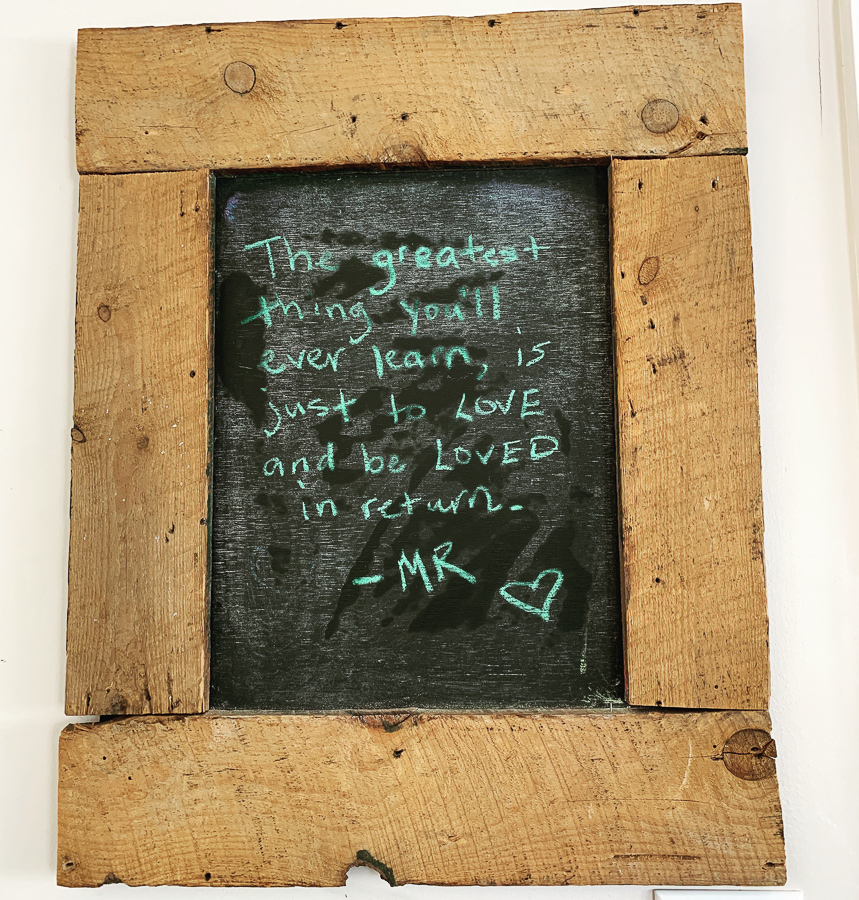 The greatest
thing you'll
ever learn, is
just to LOVE
and be LOVED
in return.
- MR